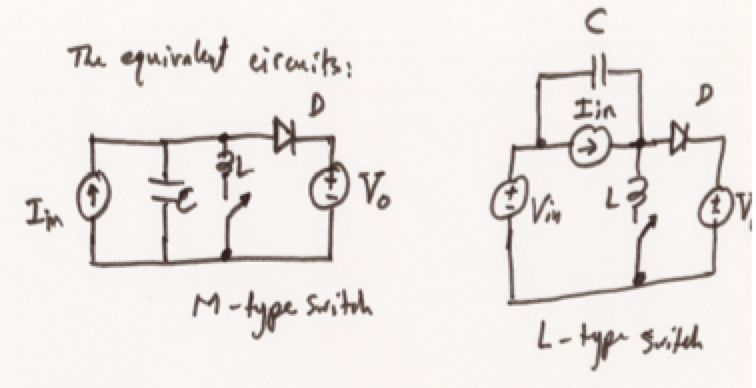 The equivalent circuits:
D
Iin
C
L
Vo
M-type switch
C
Iin
D
Vin
L
L-type switch